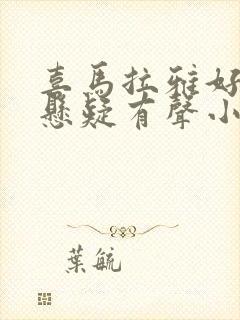 喜馬拉雅好
懸疑有聲小
葉毓